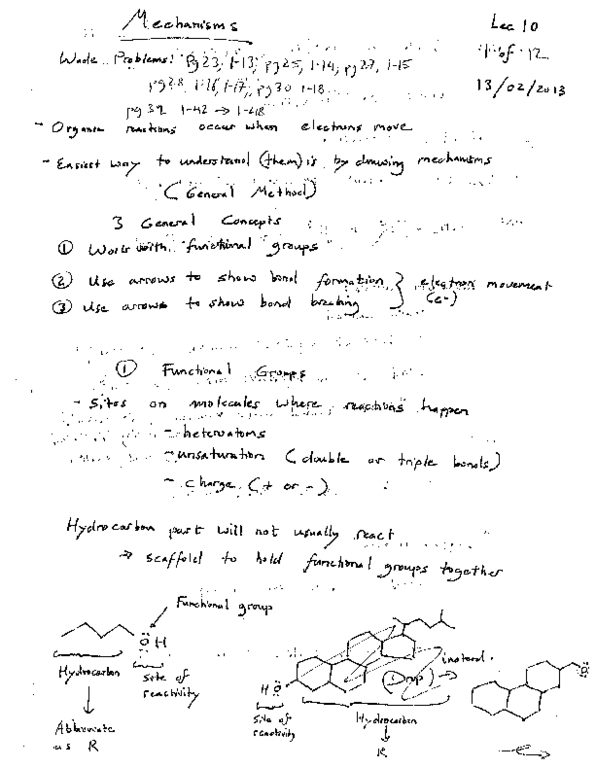 Mechanisms
Lec 10
1 of 12
13/02/2013
Wade Problems: pg 23, 1-13, pg 25, 1-14, pg 27, 1-15
pg 28, 1-16, 1-17, pg 30 1-18
pg 39 1-42 → 1-48
- Organic reactions occur when electrons move
- Easiest way to understand (them) is by drawing mechanisms
(General Method)
3 General Concepts
① Work with functional groups
② Use arrows to show bond formation
③ Use arrows to show bond breaking
} electron movement
(e-)
① Functional Groups
- Sites on molecules where reactions happen
- heteroatoms
- unsaturation (double or triple bonds)
- charge (+ or -)
Hydrocarbon part will not usually react
→ scaffold to hold functional groups together
Functional group
O H
Hydrocarbon
site of
reactivity
Abbreviate
as R
H O
site of
reactivity
Hydrocarbon
R
instead
O